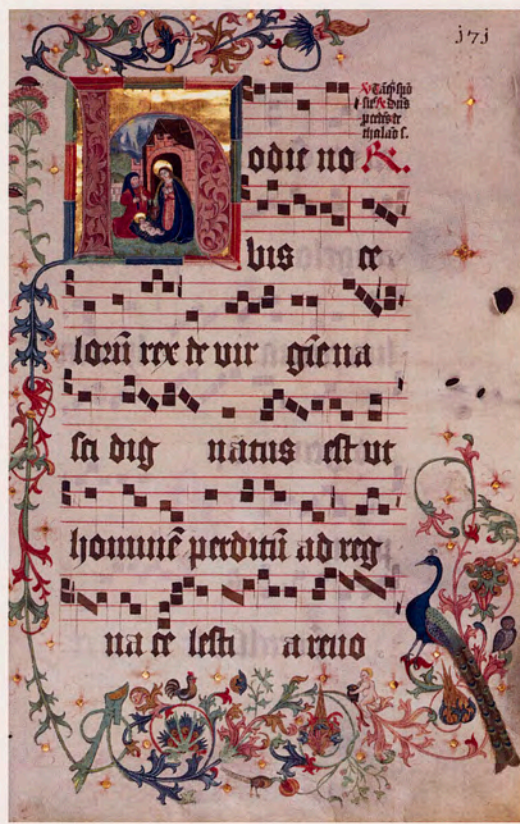 j7j
odie no R.
bis ce
lorū rex de vir gīe na
sci dig nātus est ut
hominē perditū ad reg
na ce lesti a revo